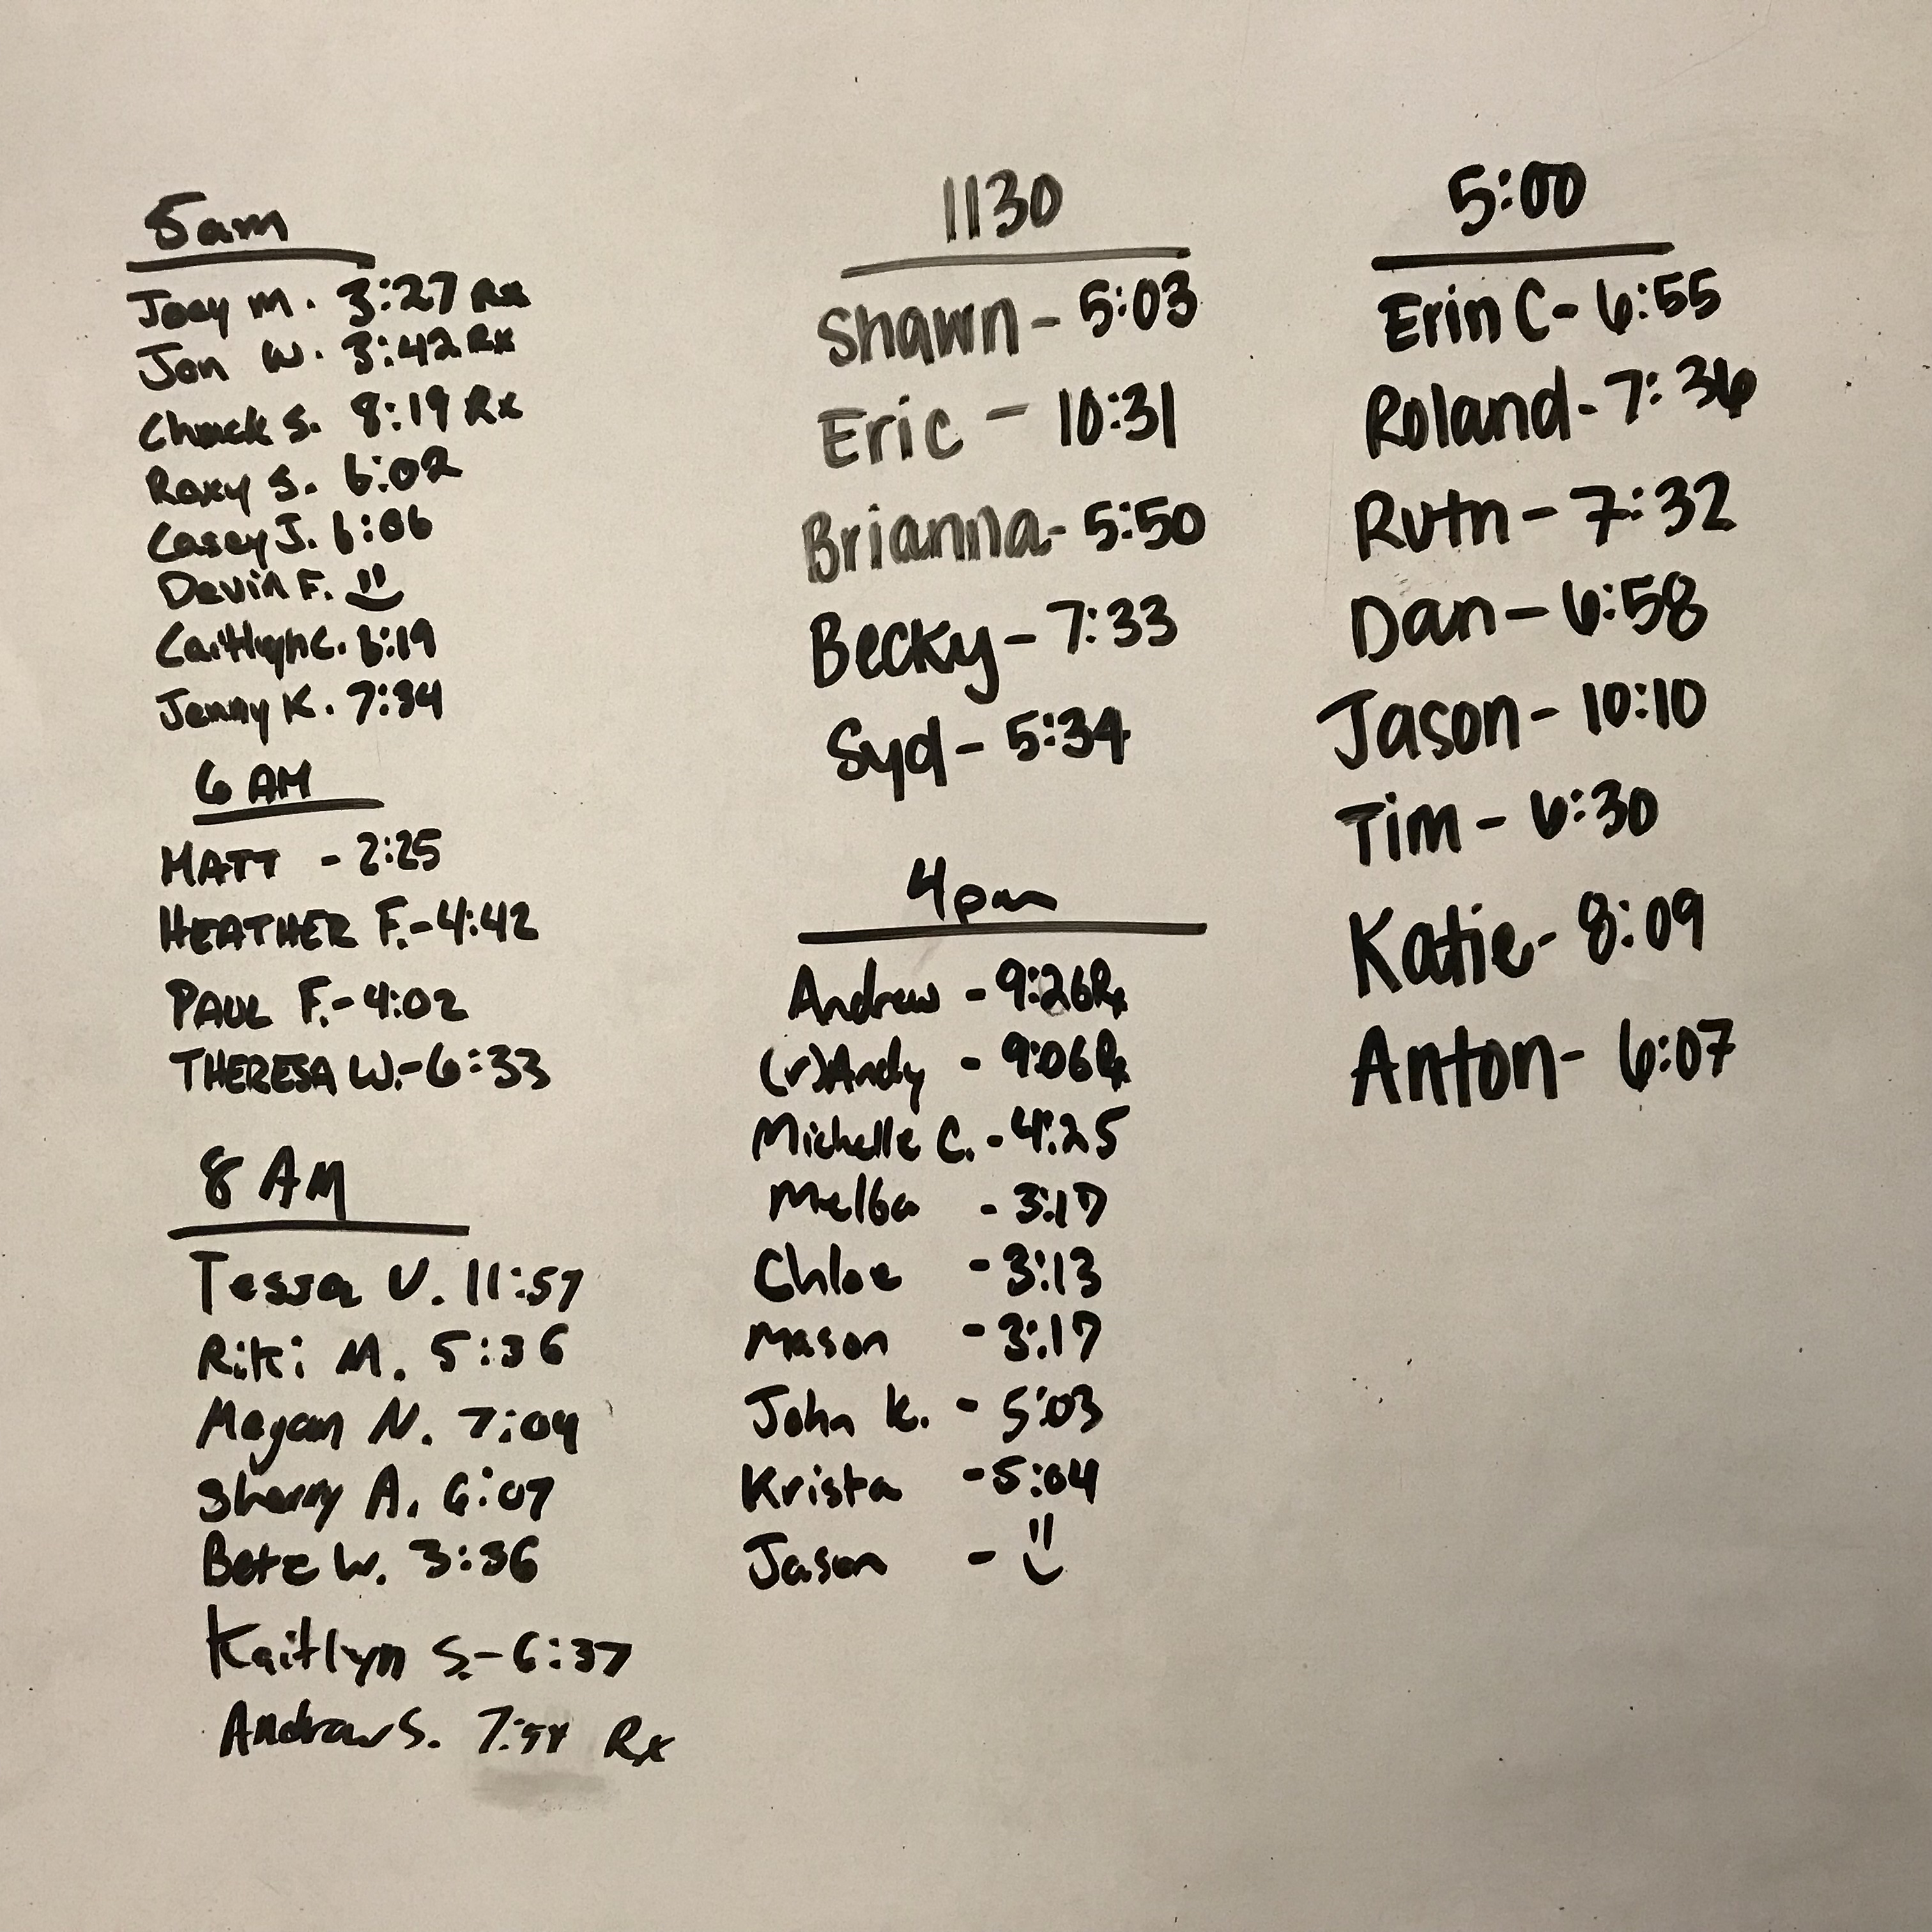 5am
Joey M. 3:27 Rx
Jon W. 3:42 Rx
Chuck S. 8:19 Rx
Roxy S. 6:02
Casey J. 6:06
Devin F.
Caitlyn C. 6:19
Jenny K. 7:34
6 AM
MATT - 2:25
HEATHER F.-4:42
PAUL F.-4:02
THERESA W.-6:33
8 AM
Tessa V. 11:57
Riki M. 5:36
Megan N. 7:04
Sherry A. 6:07
W. 3:36
Kaitlyn S.-6:37
Andrew S. Rx
1130
Shawn - 5:03
Eric - 10:31
Brianna- 5:50
Becky - 7:33
Syd - 5:34
4pm
Andrew - 9:26Rx
(r)Andy - 9:06Rx
Michelle C. - 4:25
Melba - 3:17
Chloe - 3:13
Mason - 3:17
John K. - 5:03
Krista - 5:04
Jason -
5:00
Erin C- 6:55
Roland- 7:36
Ruth - 7:32
Dan - 6:58
Jason - 10:10
Tim - 6:30
Katie- 8:09
Anton- 6:07